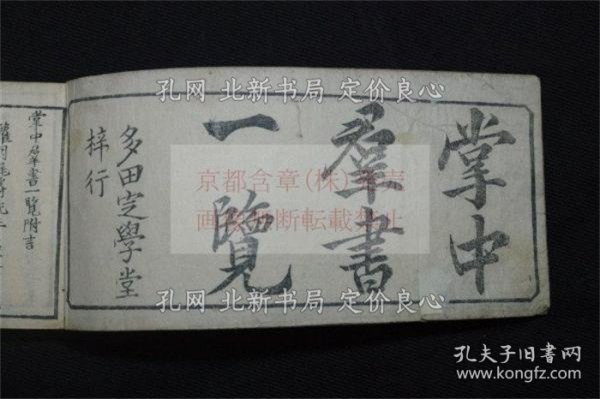 掌中
羣書
一覽
多田定學堂
梓行
掌中羣書一覽附言
孔网 北新书局 定价良心
京都含章(株)
画像無断転載禁止
孔网 北新书局 定价良心
孔夫子旧书网
www.kongfz.com